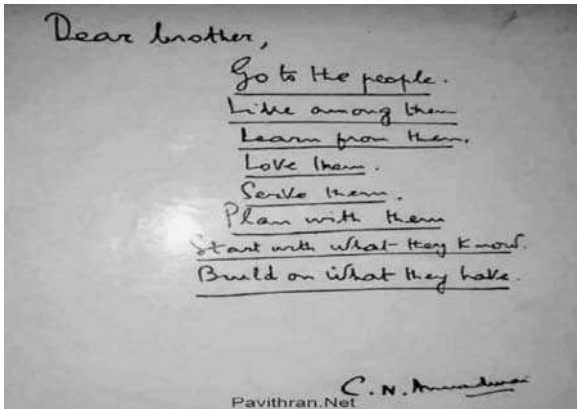 Dear brother,
Go to the people.
Live among them
Learn from them.
Love them.
Serve them.
Plan with them
Start with what they know.
Build on what they have.
C. N. Annadurai
Pavithran.Net